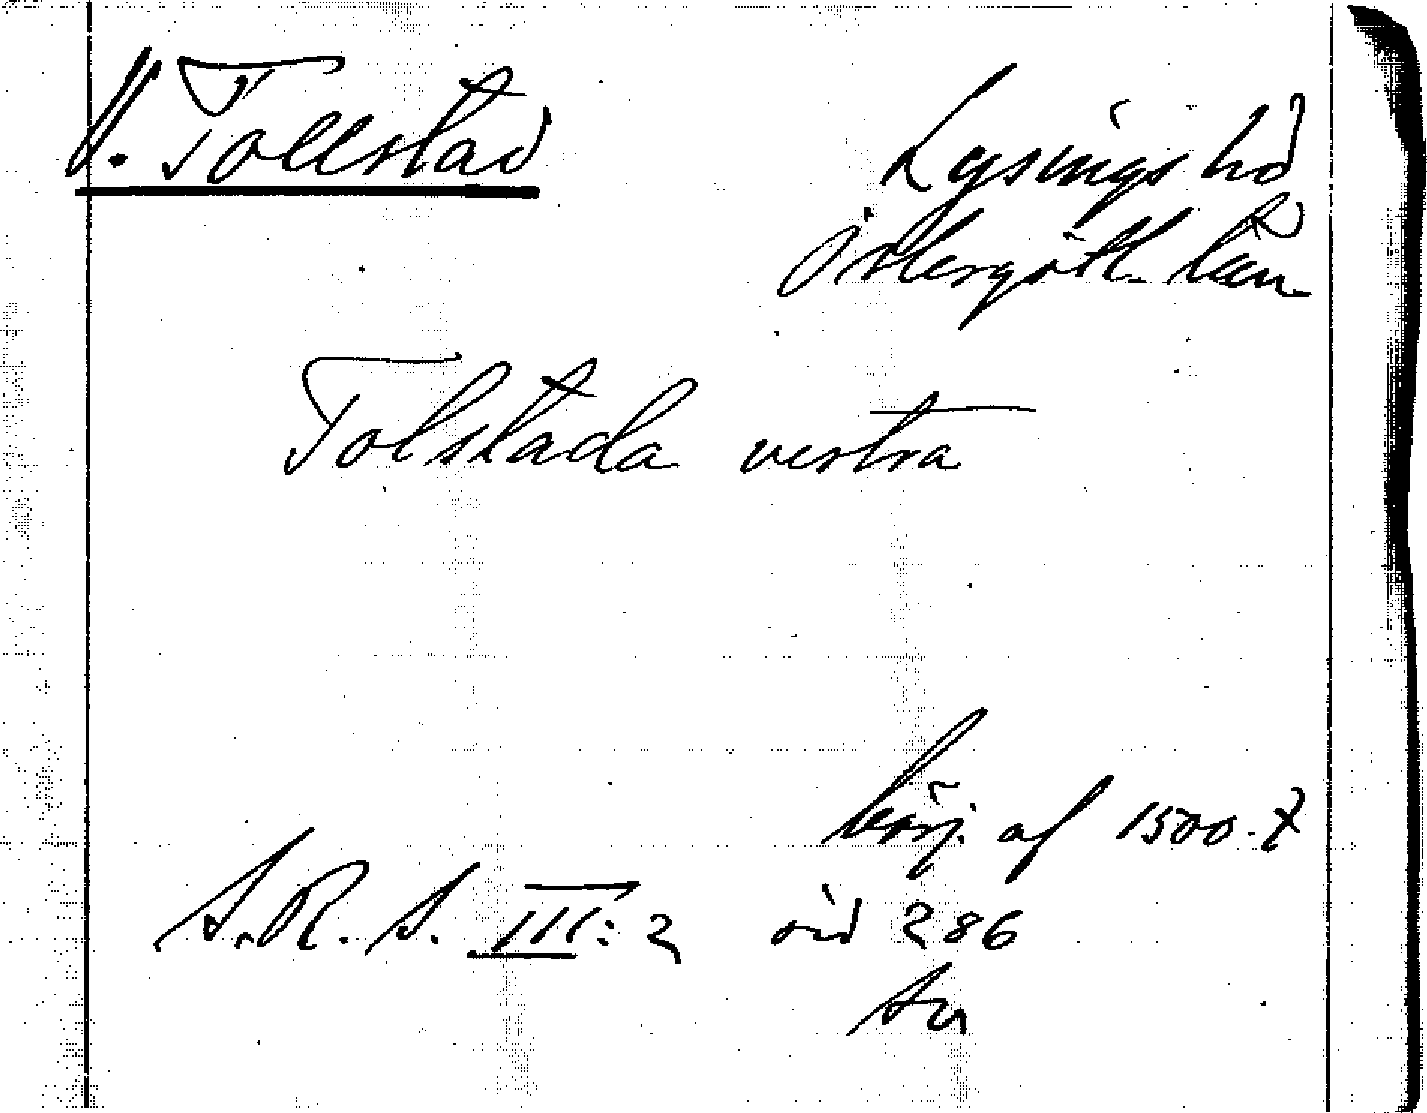 V. Tollstad
Lysings hd
Östergötl. län
Tolstada vestra
börj. af 1500-t
S.R.S. III:2 sid 286